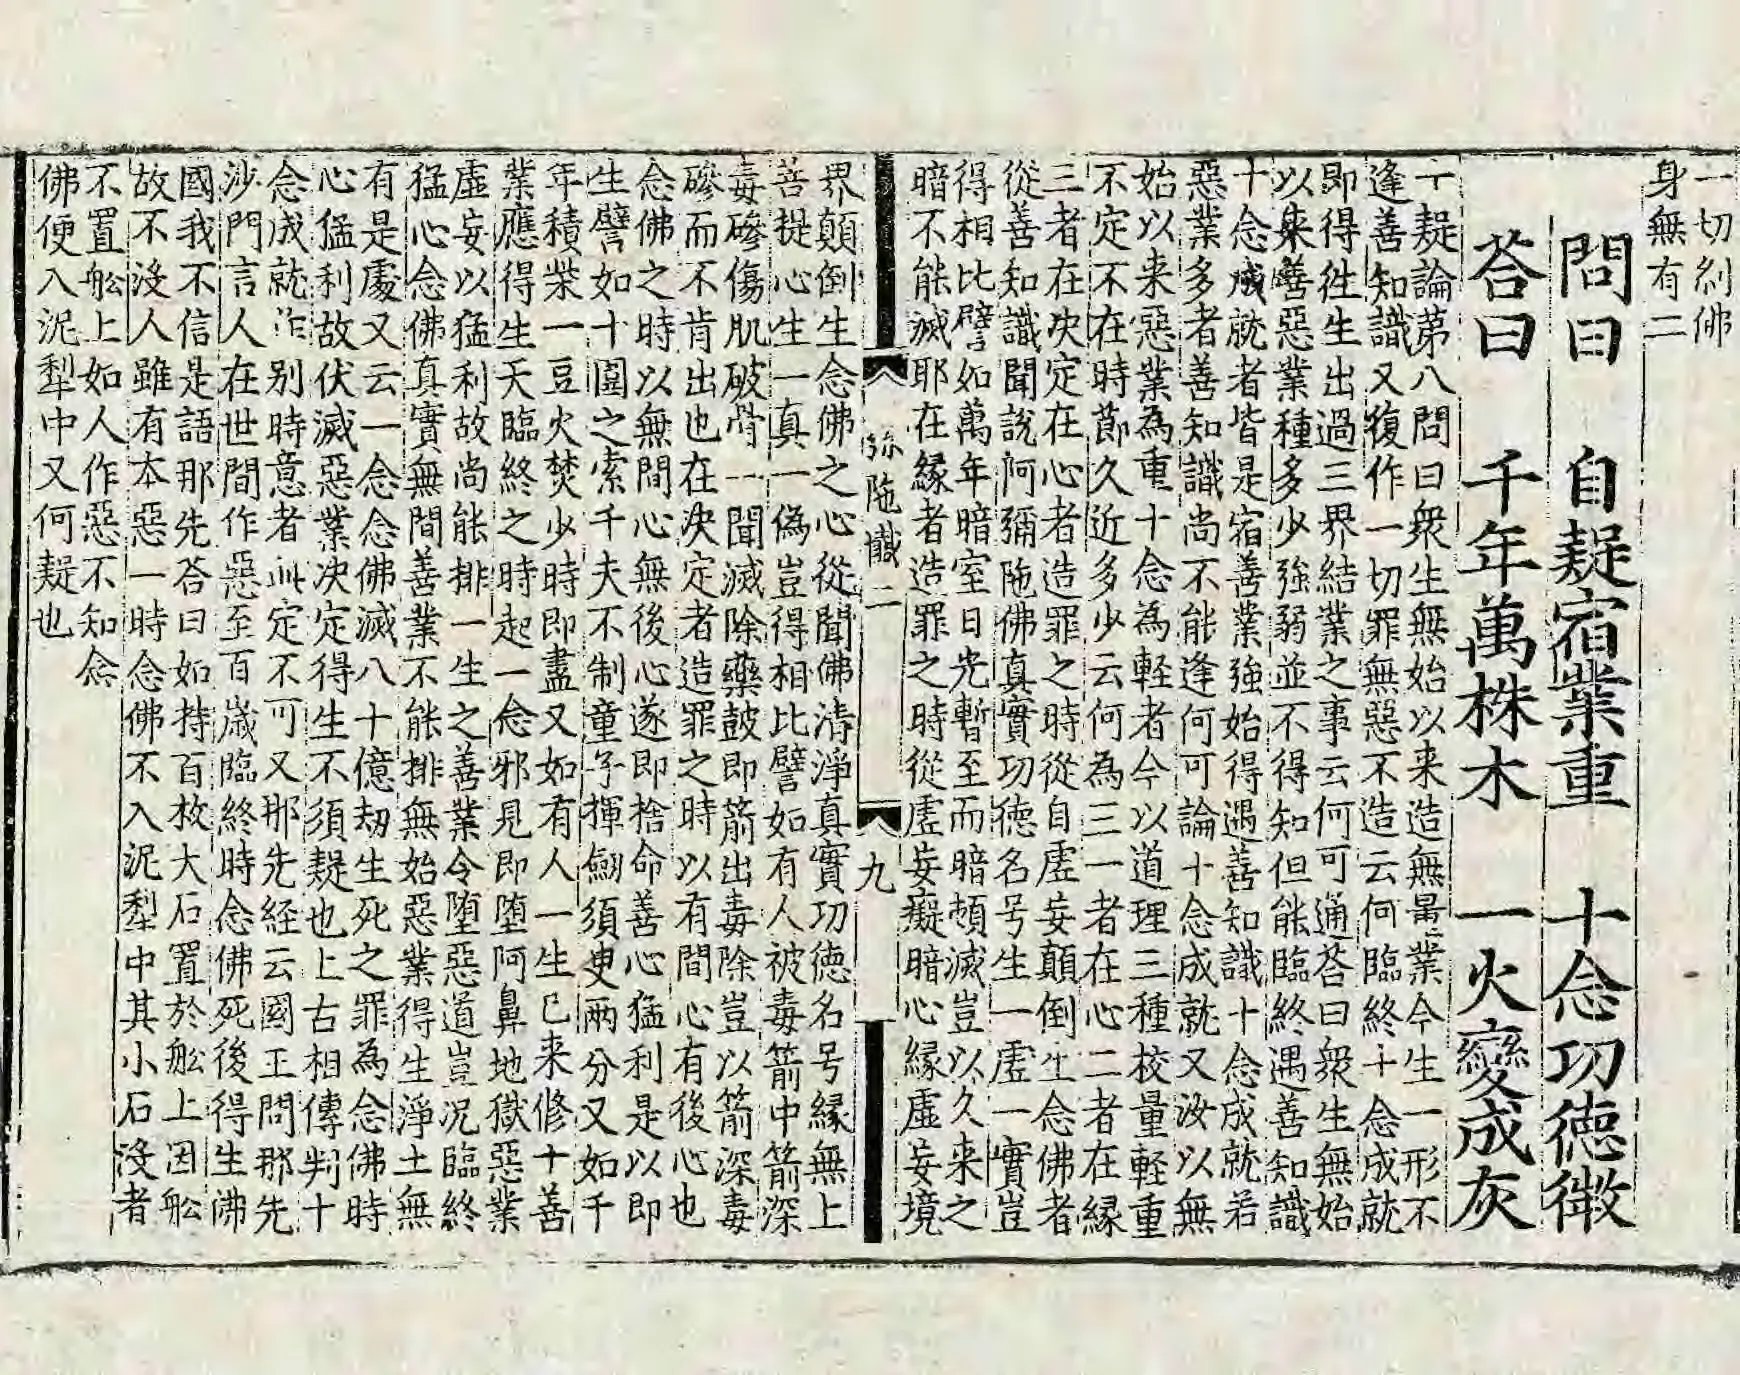 一切刹佛
身無有二
問曰　自疑宿業重　十念功德微
荅曰　千年萬株木　一火變成灰
十疑論苐八問曰衆生無始以来造無量業今生一形不
逢善知識又復作一切罪無惡不造云何臨終十念成就
即得徃生出過三界結業之事云何可通荅曰衆生無始
以来善惡業種多少強弱並不得知但能臨終遇善知識
十念成就者皆是宿善業強始得遇善知識十念成就若
惡業多者善知識尚不能逢何可論十念成就又汝以無
始以来惡業為重十念為軽者今以道理三種校量軽重
不定不在時節久近多少云何為三一者在心二者在縁
三者在决定在心者造罪之時從自虚妄顛倒生念佛者
從善知識聞說阿彌陁佛真實功徳名号生一虚一實豈
得相比譬如萬年暗室日光暫至而暗頓滅豈以久来之
暗不能滅耶在縁者造罪之時從虚妄癡暗心縁虚妄境
弥陁懺二　九
界顛倒生念佛之心從聞佛清淨真實功徳名号縁無上
菩提心生一真一偽豈得相比譬如有人被毒箭中箭深
毒磣傷肌破骨一聞滅除藥皷即箭出毒除豈以箭深毒
磣而不肯出也在决定者造罪之時以有間心有後心也
念佛之時以無間心無後心遂即捨命善心猛利是以即
生譬如十圍之索千夫不制童子揮劒須臾兩分又如千
年積柴一豆火焚少時即盡又如有人一生已来修十善
業應得生天臨終之時起一念邪見即墮阿鼻地獄惡業
虚妄以猛利故尚能排一生之善業令墮惡道豈况臨終
猛心念佛真實無間善業不能排無始惡業得生淨土無
有是處又云一念念佛滅八十億劫生死之罪為念佛時
心猛利故伏滅惡業决定得生不須疑也上古相傳判十
念成就作别時意者此定不可又那先経云國王問那先
沙門言人在世間作惡至百歳臨終時念佛死後得生佛
國我不信是語那先荅曰如持百枚大石置於舩上因舩
故不没人雖有本惡一時念佛不入泥犁中其小石没者
不置舩上如人作惡不知念
佛便入泥犁中又何疑也